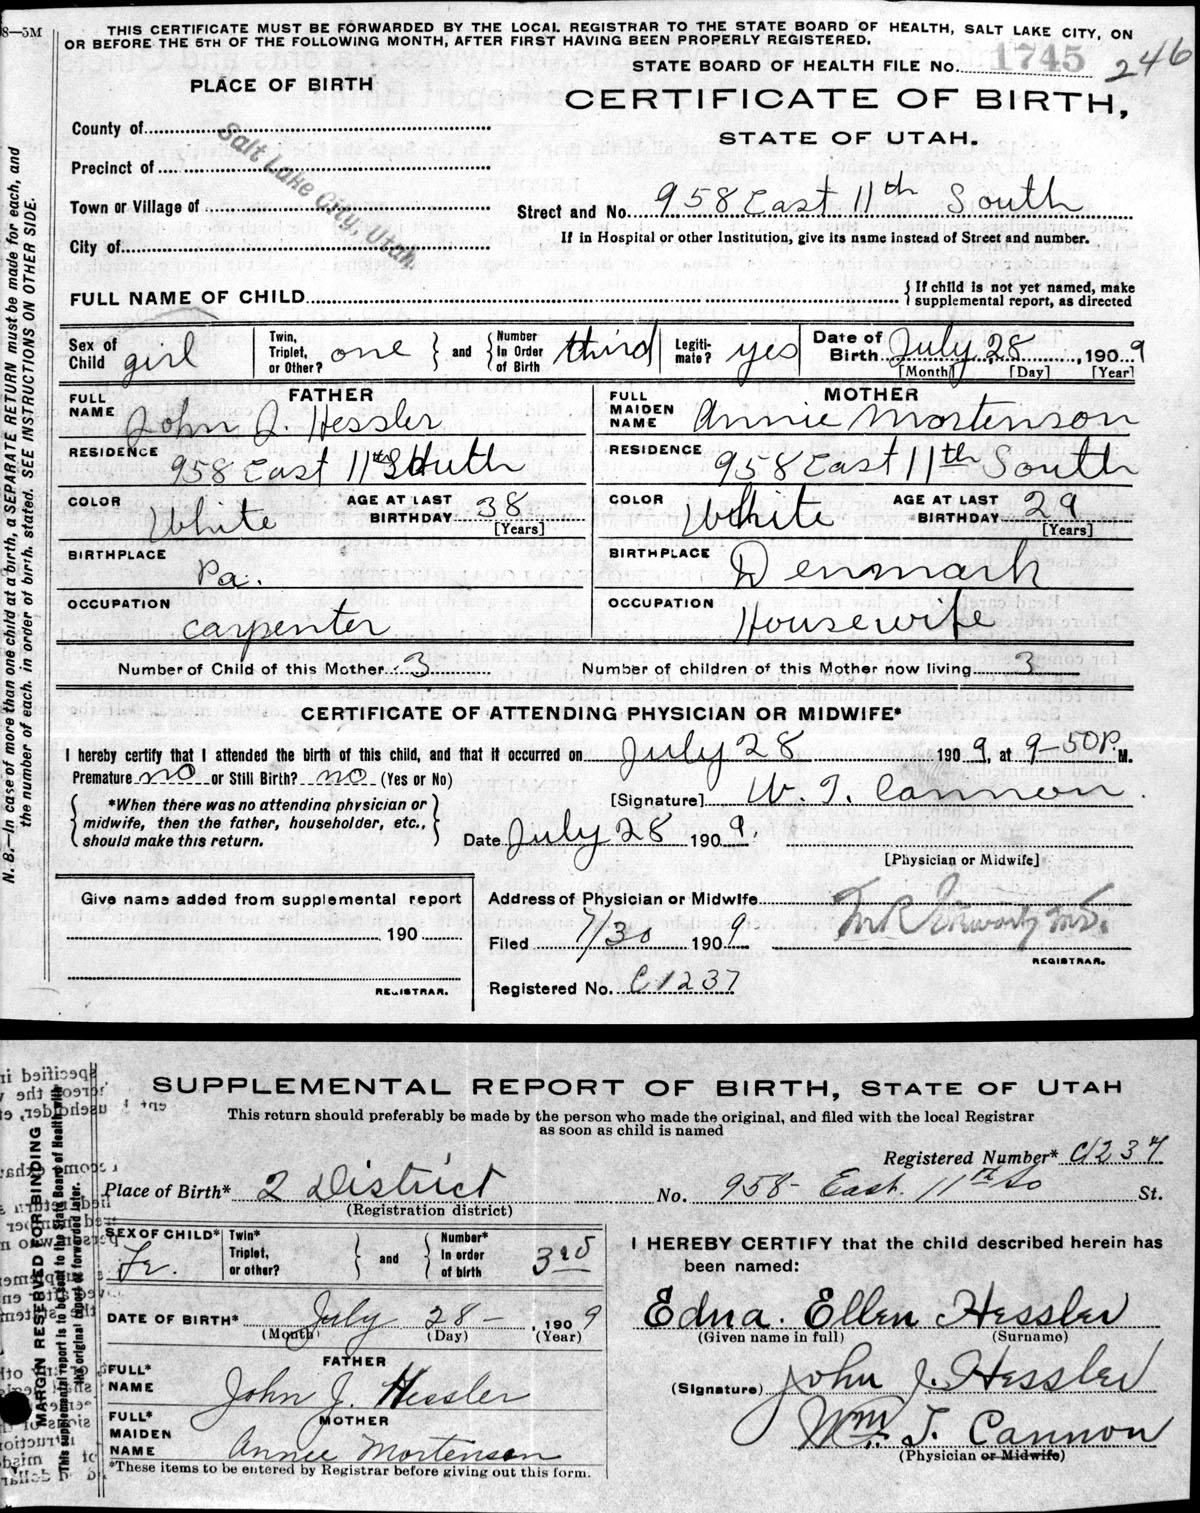 8—5M
THIS CERTIFICATE MUST BE FORWARDED BY THE LOCAL REGISTRAR TO THE STATE BOARD OF HEALTH, SALT LAKE CITY, ON
OR BEFORE THE 5TH OF THE FOLLOWING MONTH, AFTER FIRST HAVING BEEN PROPERLY REGISTERED.
STATE BOARD OF HEALTH FILE No. 1745 246
PLACE OF BIRTH
CERTIFICATE OF BIRTH,
STATE OF UTAH.
County of
Precinct of
Town or Village of
City of
Salt Lake City, Utah
Street and No. 958 East 11th South
If in Hospital or other Institution, give its name instead of Street and number.
FULL NAME OF CHILD
{ If child is not yet named, make supplemental report, as directed
Sex of Child girl Twin, Triplet, or Other? one } and { Number In Order of Birth third Legiti-mate? yes Date of Birth July 28, 1909
[Month] [Day] [Year]
FATHER
FULL NAME John J. Hessler
MOTHER
FULL MAIDEN NAME Annie Mortenson
RESIDENCE 958 East 11th South
RESIDENCE 958 East 11th South
COLOR White AGE AT LAST BIRTHDAY 38 [Years]
COLOR White AGE AT LAST BIRTHDAY 29 [Years]
BIRTHPLACE Pa.
BIRTHPLACE Denmark
OCCUPATION carpenter
OCCUPATION Housewife
Number of Child of this Mother 3 Number of children of this Mother now living 3
CERTIFICATE OF ATTENDING PHYSICIAN OR MIDWIFE*
I hereby certify that I attended the birth of this child, and that it occurred on July 28 1909, at 9-50 P. M.
Premature no or Still Birth? no (Yes or No)
{ *When there was no attending physician or midwife, then the father, householder, etc., should make this return. }
[Signature] W. T. Cannon.
Date July 28 1909.
[Physician or Midwife]
Give name added from supplemental report
190
REGISTRAR.
Address of Physician or Midwife
Filed 7/30 1909
REGISTRAR.
Registered No. C1237
N. B.—In case of more than one child at a birth, a SEPARATE RETURN must be made for each, and
the number of each, in order of birth, stated. SEE INSTRUCTIONS ON OTHER SIDE.
SUPPLEMENTAL REPORT OF BIRTH, STATE OF UTAH
This return should preferably be made by the person who made the original, and filed with the local Registrar
as soon as child is named
Registered Number* C1237
Place of Birth* 2 District No. 958- East 11th So St.
(Registration district)
SEX OF CHILD* Fe. Twin* Triplet, or other? } and { Number* In order of birth 3rd
DATE OF BIRTH* July 28 - , 1909
(Month) (Day) (Year)
FATHER
FULL* NAME John J. Hessler
MOTHER
FULL* MAIDEN NAME Annee Mortensen
*These items to be entered by Registrar before giving out this form.
I HEREBY CERTIFY that the child described herein has
been named:
Edna. Ellen Hessler
(Given name in full) (Surname)
(Signature) John J. Hessler
Wm. T. Cannon
(Physician or Midwife)
MARGIN RESERVED FOR BINDING
This supplemental report is to be sent to the State Board of Health with
the original report or forwarded later.